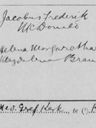 Jacobus Frederik
McDonald
Helena Margaretha
Magdalena Brand
Ned. Geref. Kerk